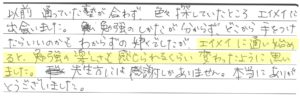 以前通っていた塾が合わず、色々探していたところ エイメイに
出会いました。勉強のしかたが分からず、どこから手をつけ
たらいいのかもわからずの娘でしたが エイメイに通い始め
ると、勉強の楽しさも感じられなくらい変わったように思い
ました。先生方には感謝しかありません。本当にありが
とうございました。